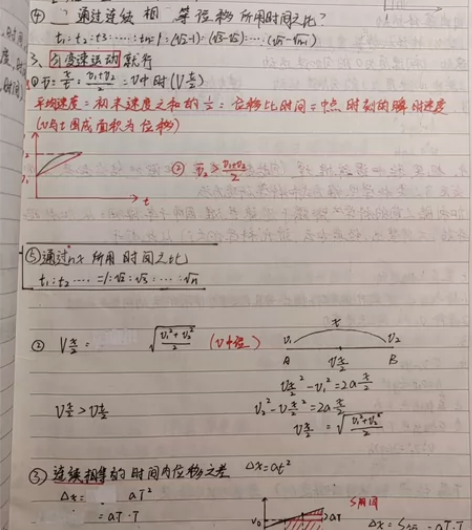 ④ 通过连续相等位移所用时间之比?
t₁:t₂:t₃:……:tₙ=1:(√2-1):(√3-√2):……:(√n-√n-1)
3、匀变速运动就行
① v̄=x/t=(v₁+v₂)/2=v中时(Vt/2)
平均速度=初末速度之和的1/2=位移比时间=中点时刻的瞬时速度
(v与t围成面积为位移)
② v̄>(v₁+v₂)/2
t
⑤通过nx所用时间之比
t₁:t₂……=1:√2:√3:……:√n
② Vx/2= √((v₁²+v₂²)/2) (V中位)
x
v₁ v₂
A Vx/2 B
Vx/2²-v₁²=2a x/2
v₂²-Vx/2²=2a x/2
Vx/2=√((v₁²+v₂²)/2)
Vx/2>Vt/2
③ 连续相等的时间内位移之差 Δx=at²
Δx= aT²
=aT·T
V₀
aT
Δx= =aT·T